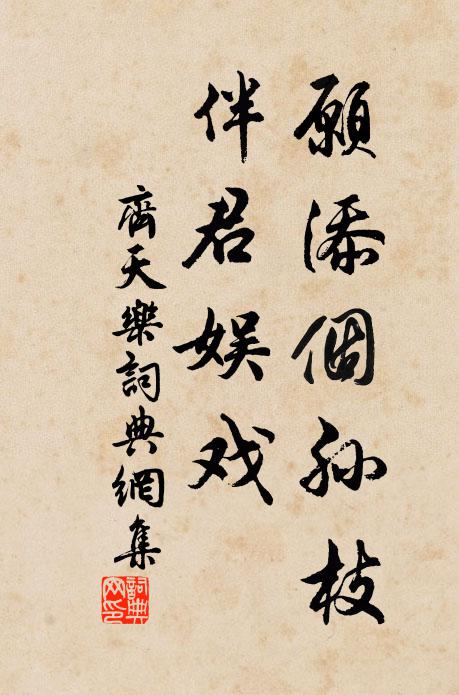 願添個孙枝
伴君娱戏
齊天樂詞典網集
詞典网印